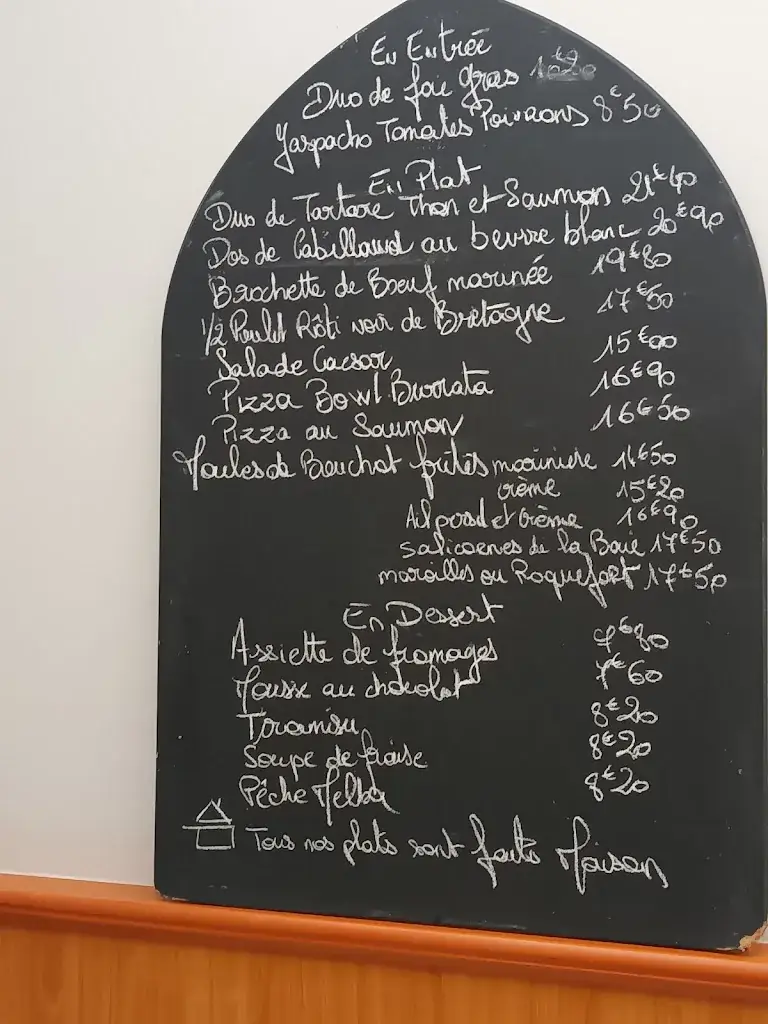 En Entrée
Duo de foie gras
Gaspacho Tomates Poivrons 8€50
En Plat
Duo de Tartare Thon et Saumon 21€40
Dos de Cabillaud au beurre blanc 20€90
Brochette de Bœuf marinée 19€80
1/2 Poulet Rôti noir de Bretagne 17€50
Salade Caesar 15€00
Pizza Bowl Burrata 16€90
Pizza au Saumon 16€50
Moules de Bouchot frites marinière 14€50
crème 15€20
Ail persil et crème 16€90
salicornes de la Baie 17€50
maroilles ou Roquefort 17€50
En Dessert
Assiette de fromages 7€80
Mousse au chocolat 7€60
Tiramisu 8€20
Soupe de fraise 8€20
Pêche Melba 8€20
Tous nos plats sont faits Maison